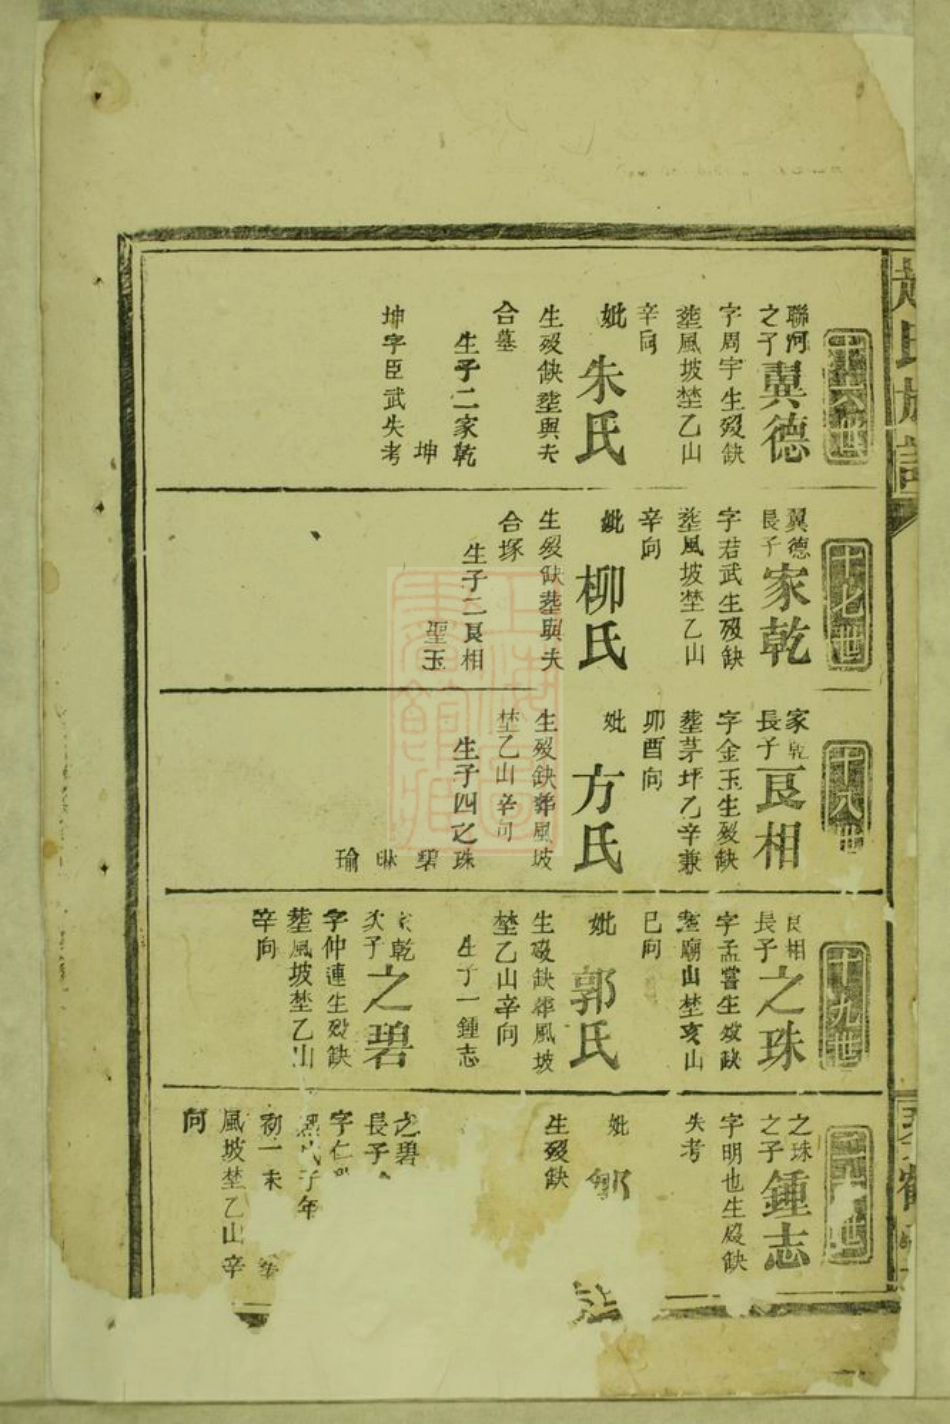 氏族譜
十六世
聯河
之子
翼德
字周宇生歿缺
塟風坡埜乙山
辛向
妣
朱氏
生歿缺塟與夫
合墓
生子二家乾
坤
坤字臣武失考
十七世
翼德
長子
家乾
字若武生歿缺
塟風坡埜乙山
辛向
妣
柳氏
生歿缺塟與夫
合塚
生子二良相
聖玉
十八世
家乾
長子
良相
字金玉生歿缺
塟茅坪乙辛兼
卯酉向
妣
方氏
生歿缺葬風坡
埜乙山辛向
生子四之珠
碧
琳
瑜
十九世
良相
長子
之珠
字孟嘗生歿缺
塟廟山埜亥山
巳向
妣
郭氏
生歿缺葬風坡
埜乙山辛向
生子一鍾志
乾
次子
之碧
字仲連生歿缺
塟風坡埜乙山
辛向
二十世
之珠
之子
鍾志
字明也生歿缺
失考
妣
鄒
生歿缺
之碧
長子
字仁
子年
初一未
風坡埜乙山辛
向